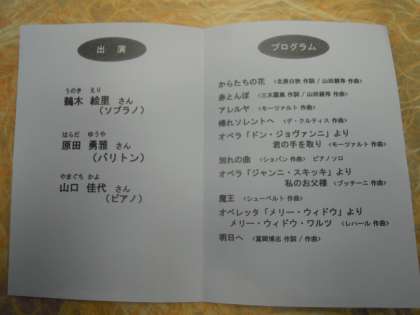 出 演
うのき えり
鵜木 絵里 さん
(ソプラノ)
はらだ ゆうや
原田 勇雅 さん
(バリトン)
やまぐち かよ
山口 佳代 さん
(ピアノ)
プログラム
からたちの花 <北原白秋 作詞 / 山田耕筰 作曲>
赤とんぼ <三木露風 作詞 / 山田耕筰 作曲>
アレルヤ <モーツァルト 作曲>
帰れソレントへ <デ・クルティス 作曲>
オペラ「ドン・ジョヴァンニ」より
君の手を取り <モーツァルト 作曲>
別れの曲 <ショパン 作曲> ピアノソロ
オペラ「ジャンニ・スキッキ」より
私のお父様 <プッチーニ 作曲>
魔王 <シューベルト 作曲>
オペレッタ「メリー・ウィドウ」より
メリー・ウィドウ・ワルツ <レハール 作曲>
明日へ <富岡博志 作詞 / 作曲>